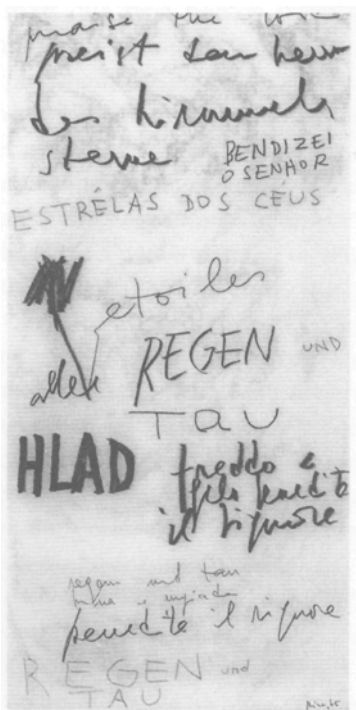 praise the
preist den herrn
des himmels
sterne
BENDIZEI
O SENHOR
ESTRÉLAS DOS CÉUS
etoiles
REGEN UND
TAU
HLAD
freddo e
gelo benedite
il signore
regen und tau
benedite il signore
REGEN und
TAU